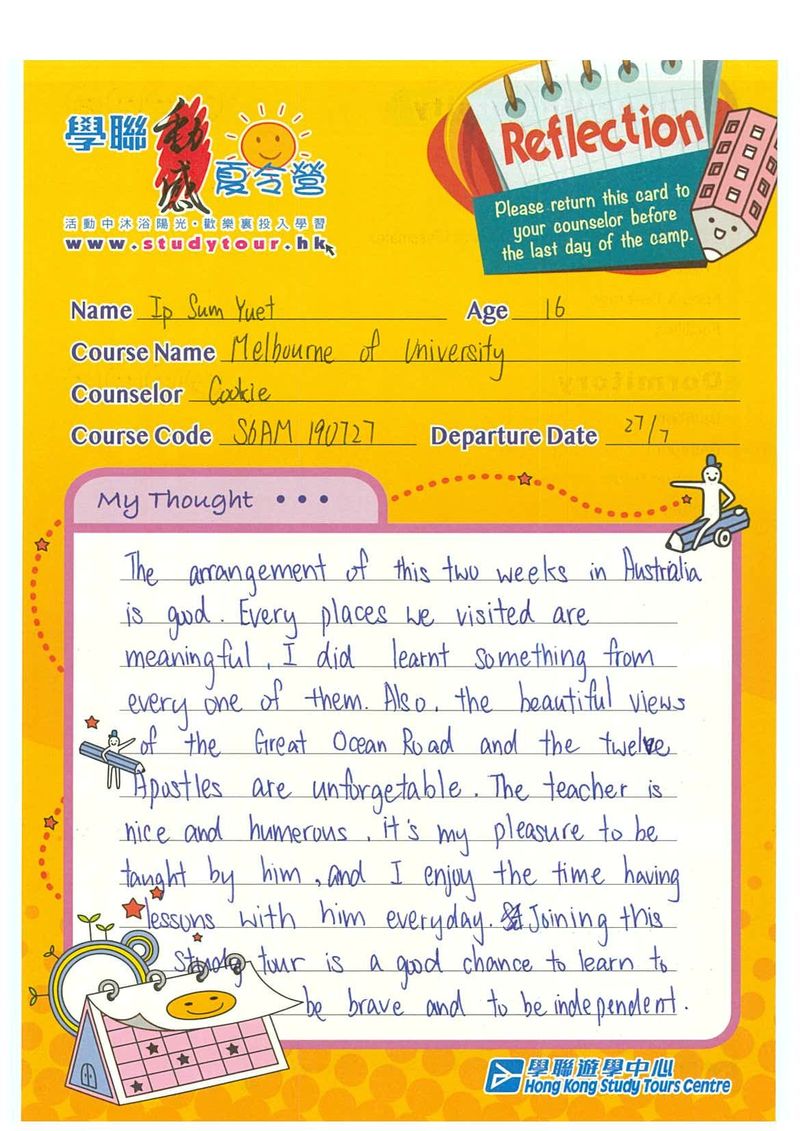 學聯 動感 夏令營
活動中沐浴陽光·歡樂裏投入學習
www.studytour.hk
Reflection
Please return this card to
your counselor before
the last day of the camp.
Name Ip Sum Yuet Age 16
Course Name Melbourne of University
Counselor Cookie
Course Code S6AM 190727 Departure Date 27/7
My Thought • • •
The arrangement of this two weeks in Australia
is good. Every places we visited are
meaningful, I did learnt something from
every one of them. Also, the beautiful views
of the Great Ocean Road and the twelve
Apostles are unforgetable. The teacher is
nice and humerous, it's my pleasure to be
taught by him, and I enjoy the time having
lessons with him everyday. Joining this
study tour is a good chance to learn to
be brave and to be independent.
學聯遊學中心
Hong Kong Study Tours Centre